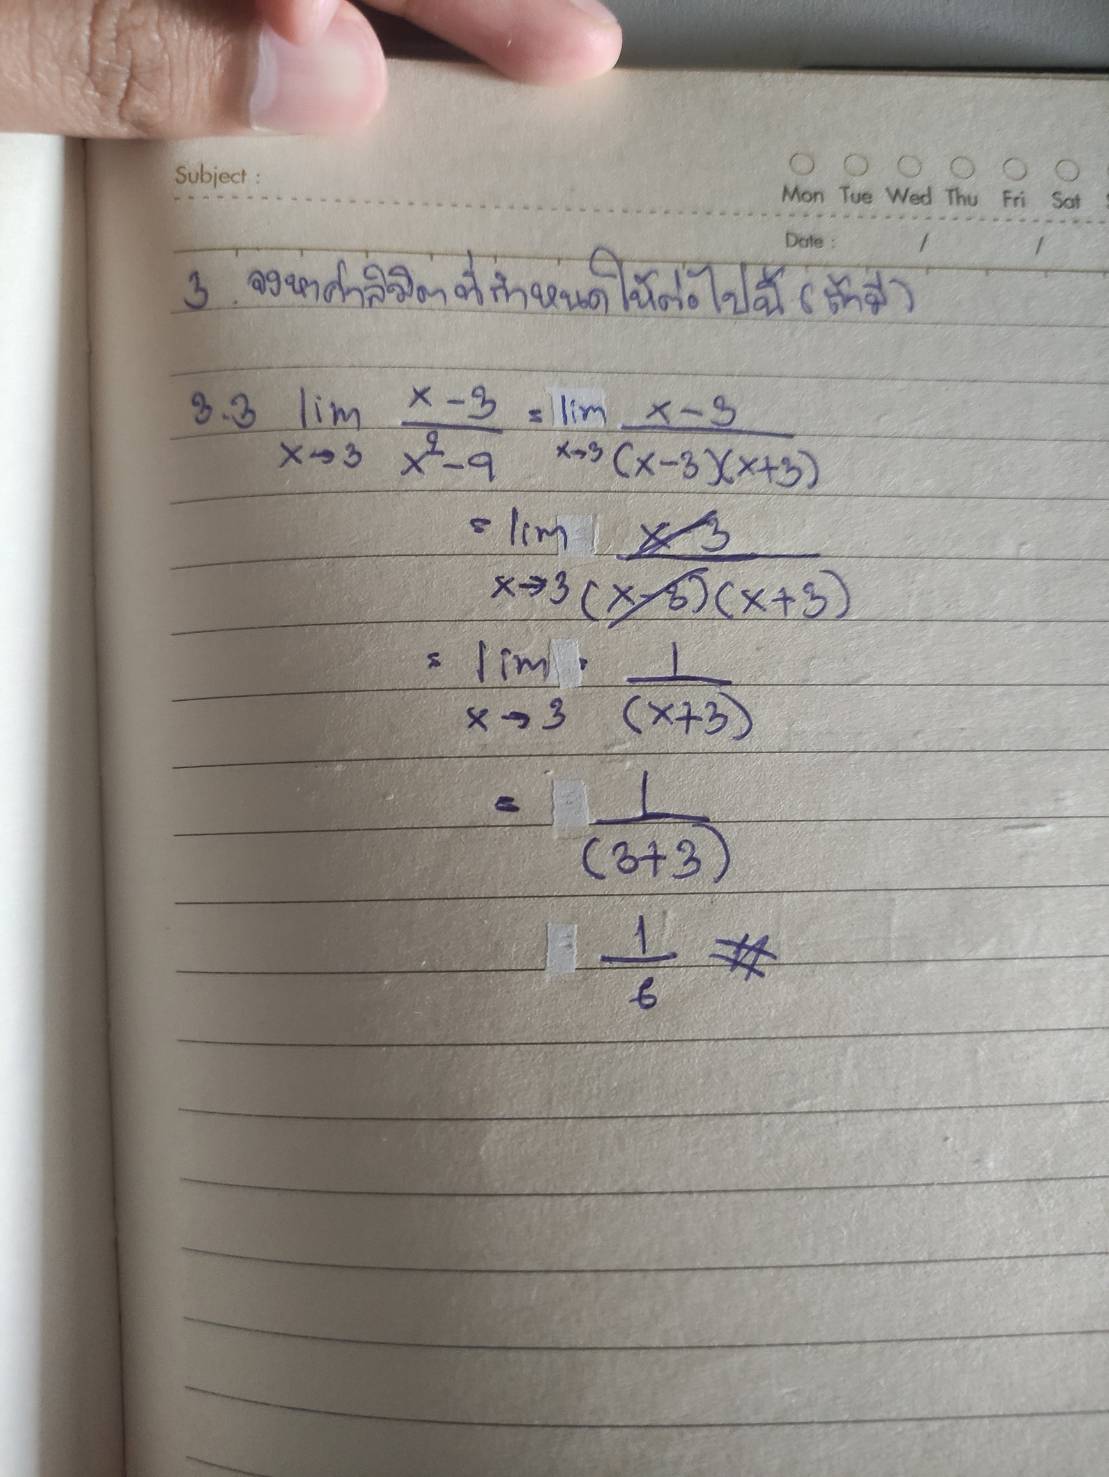 Subject :
Mon Tue Wed Thu Fri Sat
Date : / /
3. จงหาค่าลิมิตที่กำหนดให้ต่อไปนี้ (ถ้ามี)
3.3 lim x→3 (x-3)/(x²-9) = lim x→3 (x-3)/((x-3)(x+3))
= lim x→3 (x-3)/((x-3)(x+3))
= lim x→3 1/(x+3)
= 1/(3+3)
1/6 #